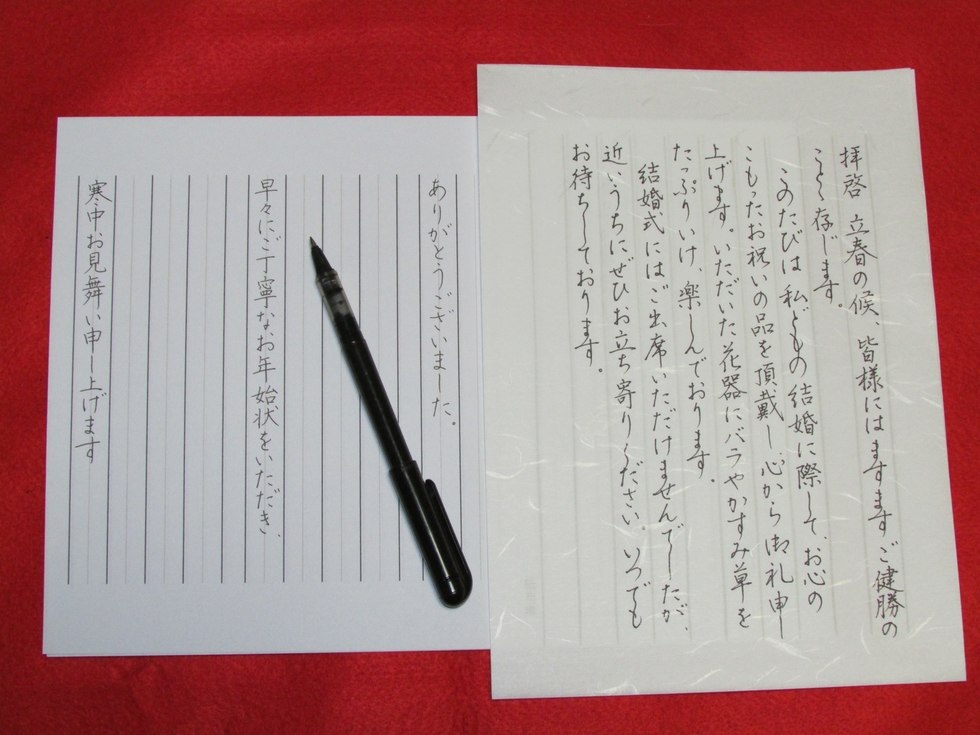 拝啓 立春の候、皆様にはますますご健勝の
ことと存じます。
このたびは私どもの結婚に際して、お心の
こもったお祝いの品を頂戴し、心から御礼申し
上げます。いただいた花器にバラやかすみ草を
たっぷりいけ、楽しんでおります。
結婚式にはご出席いただけませんでしたが、
近いうちにぜひお立ち寄りください。いつでも
お待ちしております。
ありがとうございました。
早々にご丁寧なお年始状をいただき、
寒中お見舞い申し上げます